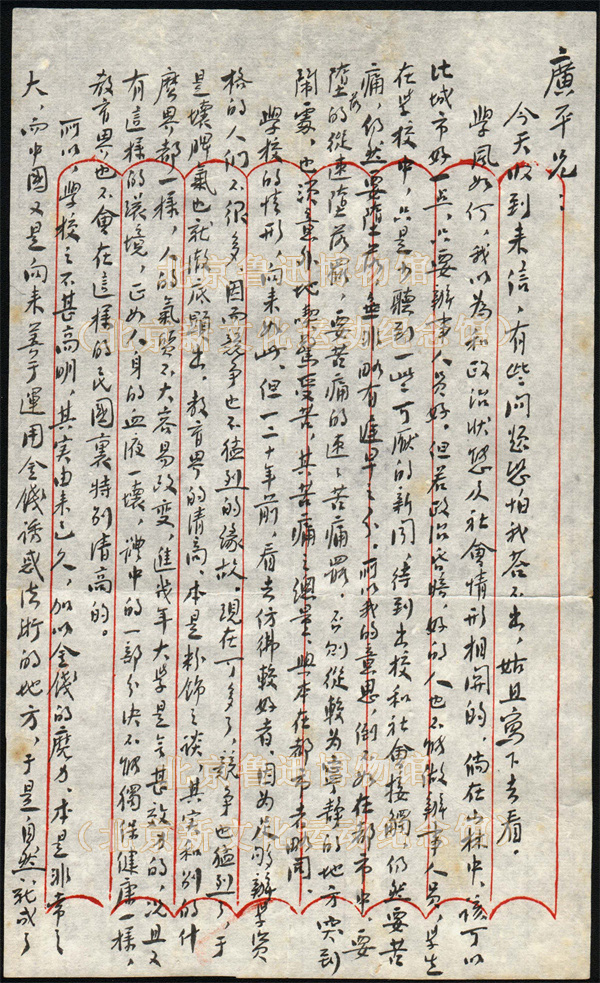 廣平兄：
今天收到來信，有些問題恐怕我答不出，姑且寫下去看。
學風如何，我以為和政治狀態及社會情形相關的，倘在山林中，該可以
比城市好一点，只要辦事人員好。但若政治昏暗，好的人也不能做辦事人員，學生
在學校中，只是少聽到一些可厭的新聞，待到出校和社會接觸，仍然要苦
痛，仍然要墮落，無非略有遲早之分。所以我的意思，倒不如在都市中，要
墮落的從速墮落罷，要苦痛的速々苦痛罷，否則從較為寧靜的地方突到
鬧處，也須意外地喫驚受苦，其苦痛之總量，與本在都市者略同。
學校的情形，向來如此，但一二十年前，看去仿彿較好者，因為足夠辦學資
格的人們不很多，因而競爭也不猛烈的緣故。現在可多了，競爭也猛烈了，于
是壞脾氣也就徹底顯出。教育界的清高，本是粉飾之談，其實和別的什
麼界都一樣，人的氣質不大容易改變，進幾年大學是無甚效力的，況且又
有這樣的環境，正如人身的血液一壞，體中的一部分決不能獨保健康一樣，
教育界也不會在這樣的民國裏特別清高的。
所以，學校之不甚高明，其實由來已久，加以金錢的魔力，本是非常之
大，而中國又是向來善于運用金錢誘惑法術的地方，于是自然就成了
北京鲁迅博物馆
（北京新文化运动纪念馆）
北京鲁迅博物馆
（北京新文化运动纪念馆）